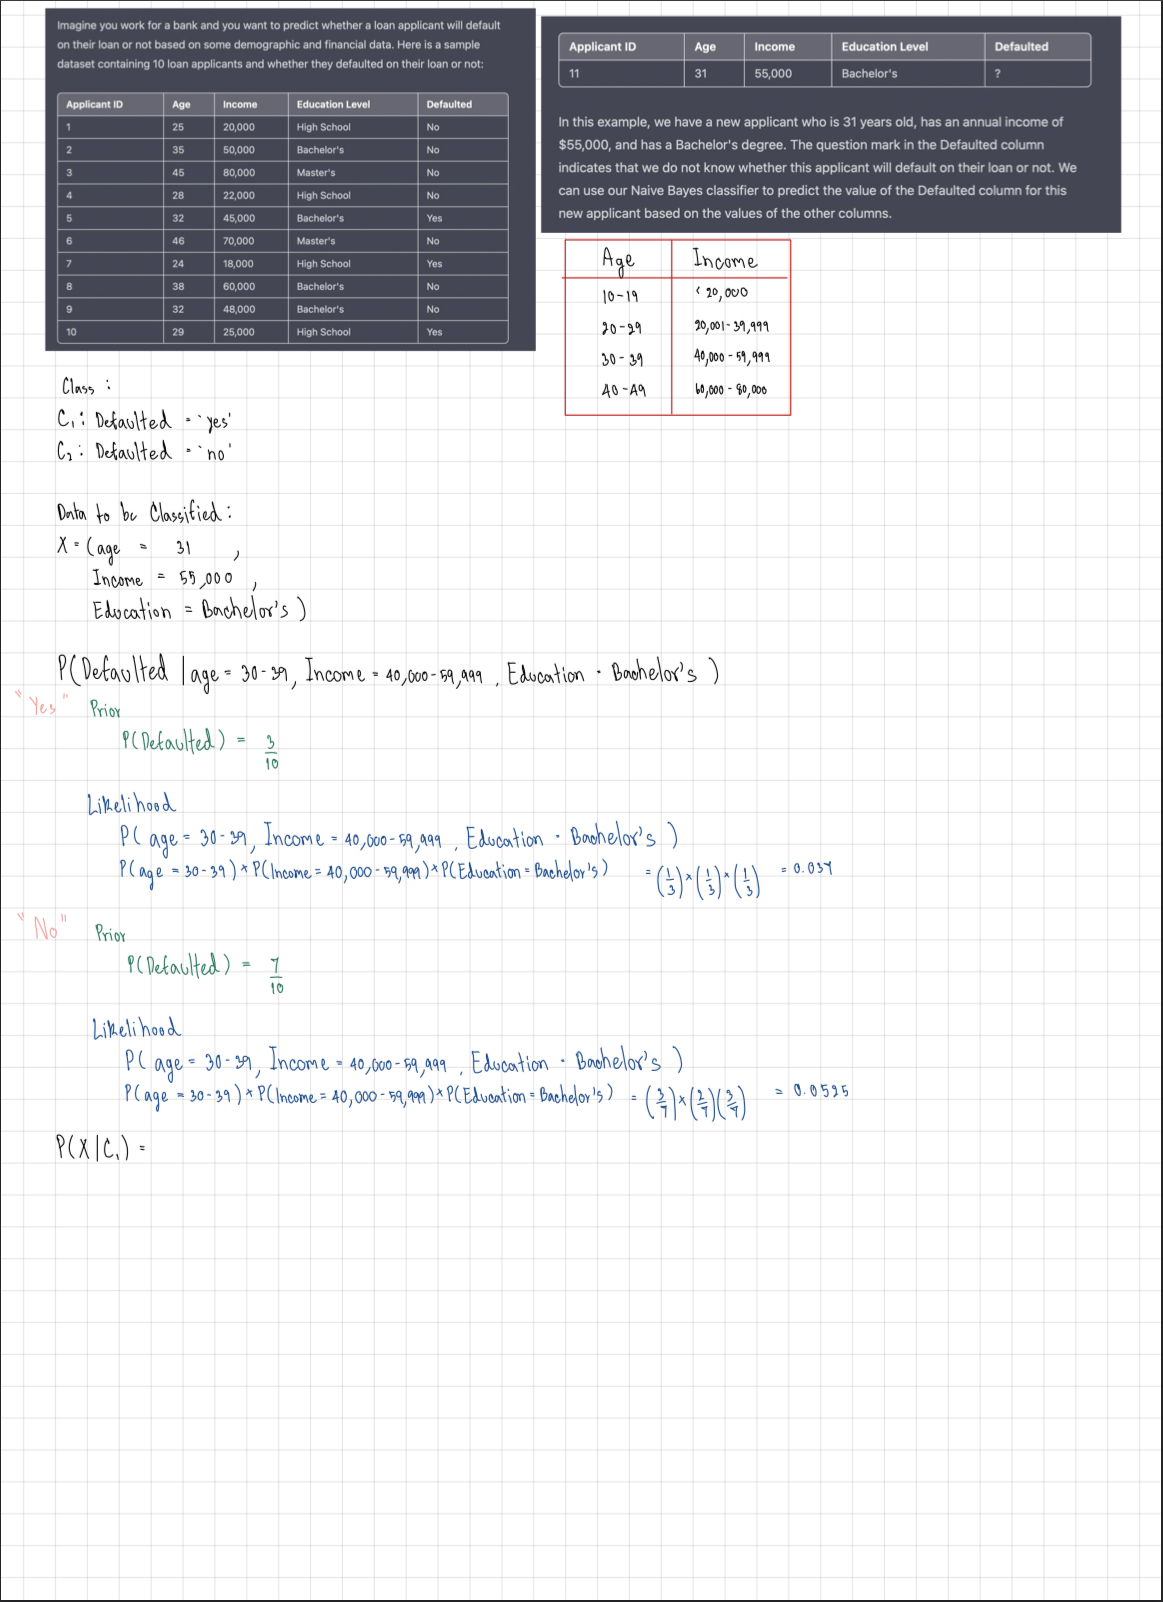 Imagine you work for a bank and you want to predict whether a loan applicant will default
on their loan or not based on some demographic and financial data. Here is a sample
dataset containing 10 loan applicants and whether they defaulted on their loan or not:
Applicant ID Age Income Education Level Defaulted
1 25 20,000 High School No
2 35 50,000 Bachelor's No
3 45 80,000 Master's No
4 28 22,000 High School No
5 32 45,000 Bachelor's Yes
6 46 70,000 Master's No
7 24 18,000 High School Yes
8 38 60,000 Bachelor's No
9 32 48,000 Bachelor's No
10 29 25,000 High School Yes
Applicant ID Age Income Education Level Defaulted
11 31 55,000 Bachelor's ?
In this example, we have a new applicant who is 31 years old, has an annual income of
$55,000, and has a Bachelor's degree. The question mark in the Defaulted column
indicates that we do not know whether this applicant will default on their loan or not. We
can use our Naive Bayes classifier to predict the value of the Defaulted column for this
new applicant based on the values of the other columns.
Age Income
10-19 < 20,000
20-29 20,001-39,999
30-39 40,000-59,999
40-49 60,000-80,000
Class :
C₁: Defaulted = 'yes'
C₂: Defaulted = 'no'
Data to be Classified:
X = (age = 31 ,
Income = 55,000 ,
Education = Bachelor's )
P(Defaulted | age = 30-39, Income = 40,000-59,999 , Education = Bachelor's )
"Yes" Prior
P(Defaulted) = 3/10
Likelihood
P( age = 30-39, Income = 40,000-59,999 , Education = Bachelor's )
P(age = 30-39) * P(Income = 40,000-59,999) * P(Education = Bachelor's) = (1/3) * (1/3) * (1/3) = 0.037
"No" Prior
P(Defaulted) = 7/10
Likelihood
P( age = 30-39, Income = 40,000-59,999 , Education = Bachelor's )
P(age = 30-39) * P(Income = 40,000-59,999) * P(Education = Bachelor's) = (3/7) * (2/7)(3/7) = 0.0525
P(X|C₁) =